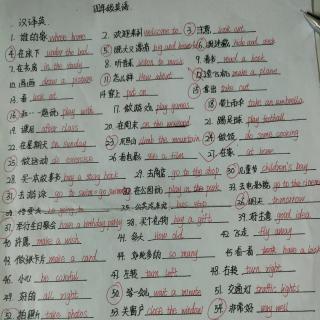 四年级英语
一. 汉译英
1. 谁的家 whose home 2. 欢迎来到 welcome to 3. 注意 look out
4. 在床下 under the bed 5. 既大又漂亮 big and beautiful 6. 捉迷藏 hide and seek
7. 在书房 in the study 8. 听音乐 listen to music 9. 看书 read a book
10. 画画 draw a picture 11. 怎么样 How about 12. make a plane
13. 看 look at 14. 穿上 put on 15. 拿出 take out
16. 和一起玩 play with 17. 做游戏 play games 18. 带上雨伞 take an umbrella
19. 课后 after class 20. 在周末 on the weekend 21. 踢足球 play football
22. 在星期天 on Sunday 23. 爬山 climb the mountain 24. 做饭 do some cooking
25. 做运动 do exercise 26. 看电影 see a film 27. 在家 at home
28. 买一本故事书 buy a story book 29. 去商店 go to the shop 30. 儿童节 children's Day
31. 去游泳 go to swim 32. 在公园玩 play in the park 33. 去电影院 go to the cinema
bus stop 36. 明天 tomorrow
37. 举行生日聚会 have a birthday party 38. 买个礼物 buy a gift 39. 好主意 good idea
40. 许愿 make a wish 41. 多大 How old 42. 飞走 fly away
43. 做张卡片 make a card 44. 许多的 so many 45. 看一看 have a look
46. 小心 be careful 47. 左转 turn left 48. 右转 turn right
49. 好的 all right 50. 等一会儿 wait a minute 51. 交通灯 traffic lights
52. 拍照片 take photos 53. 关窗户 close the window 54. 非常好 very well